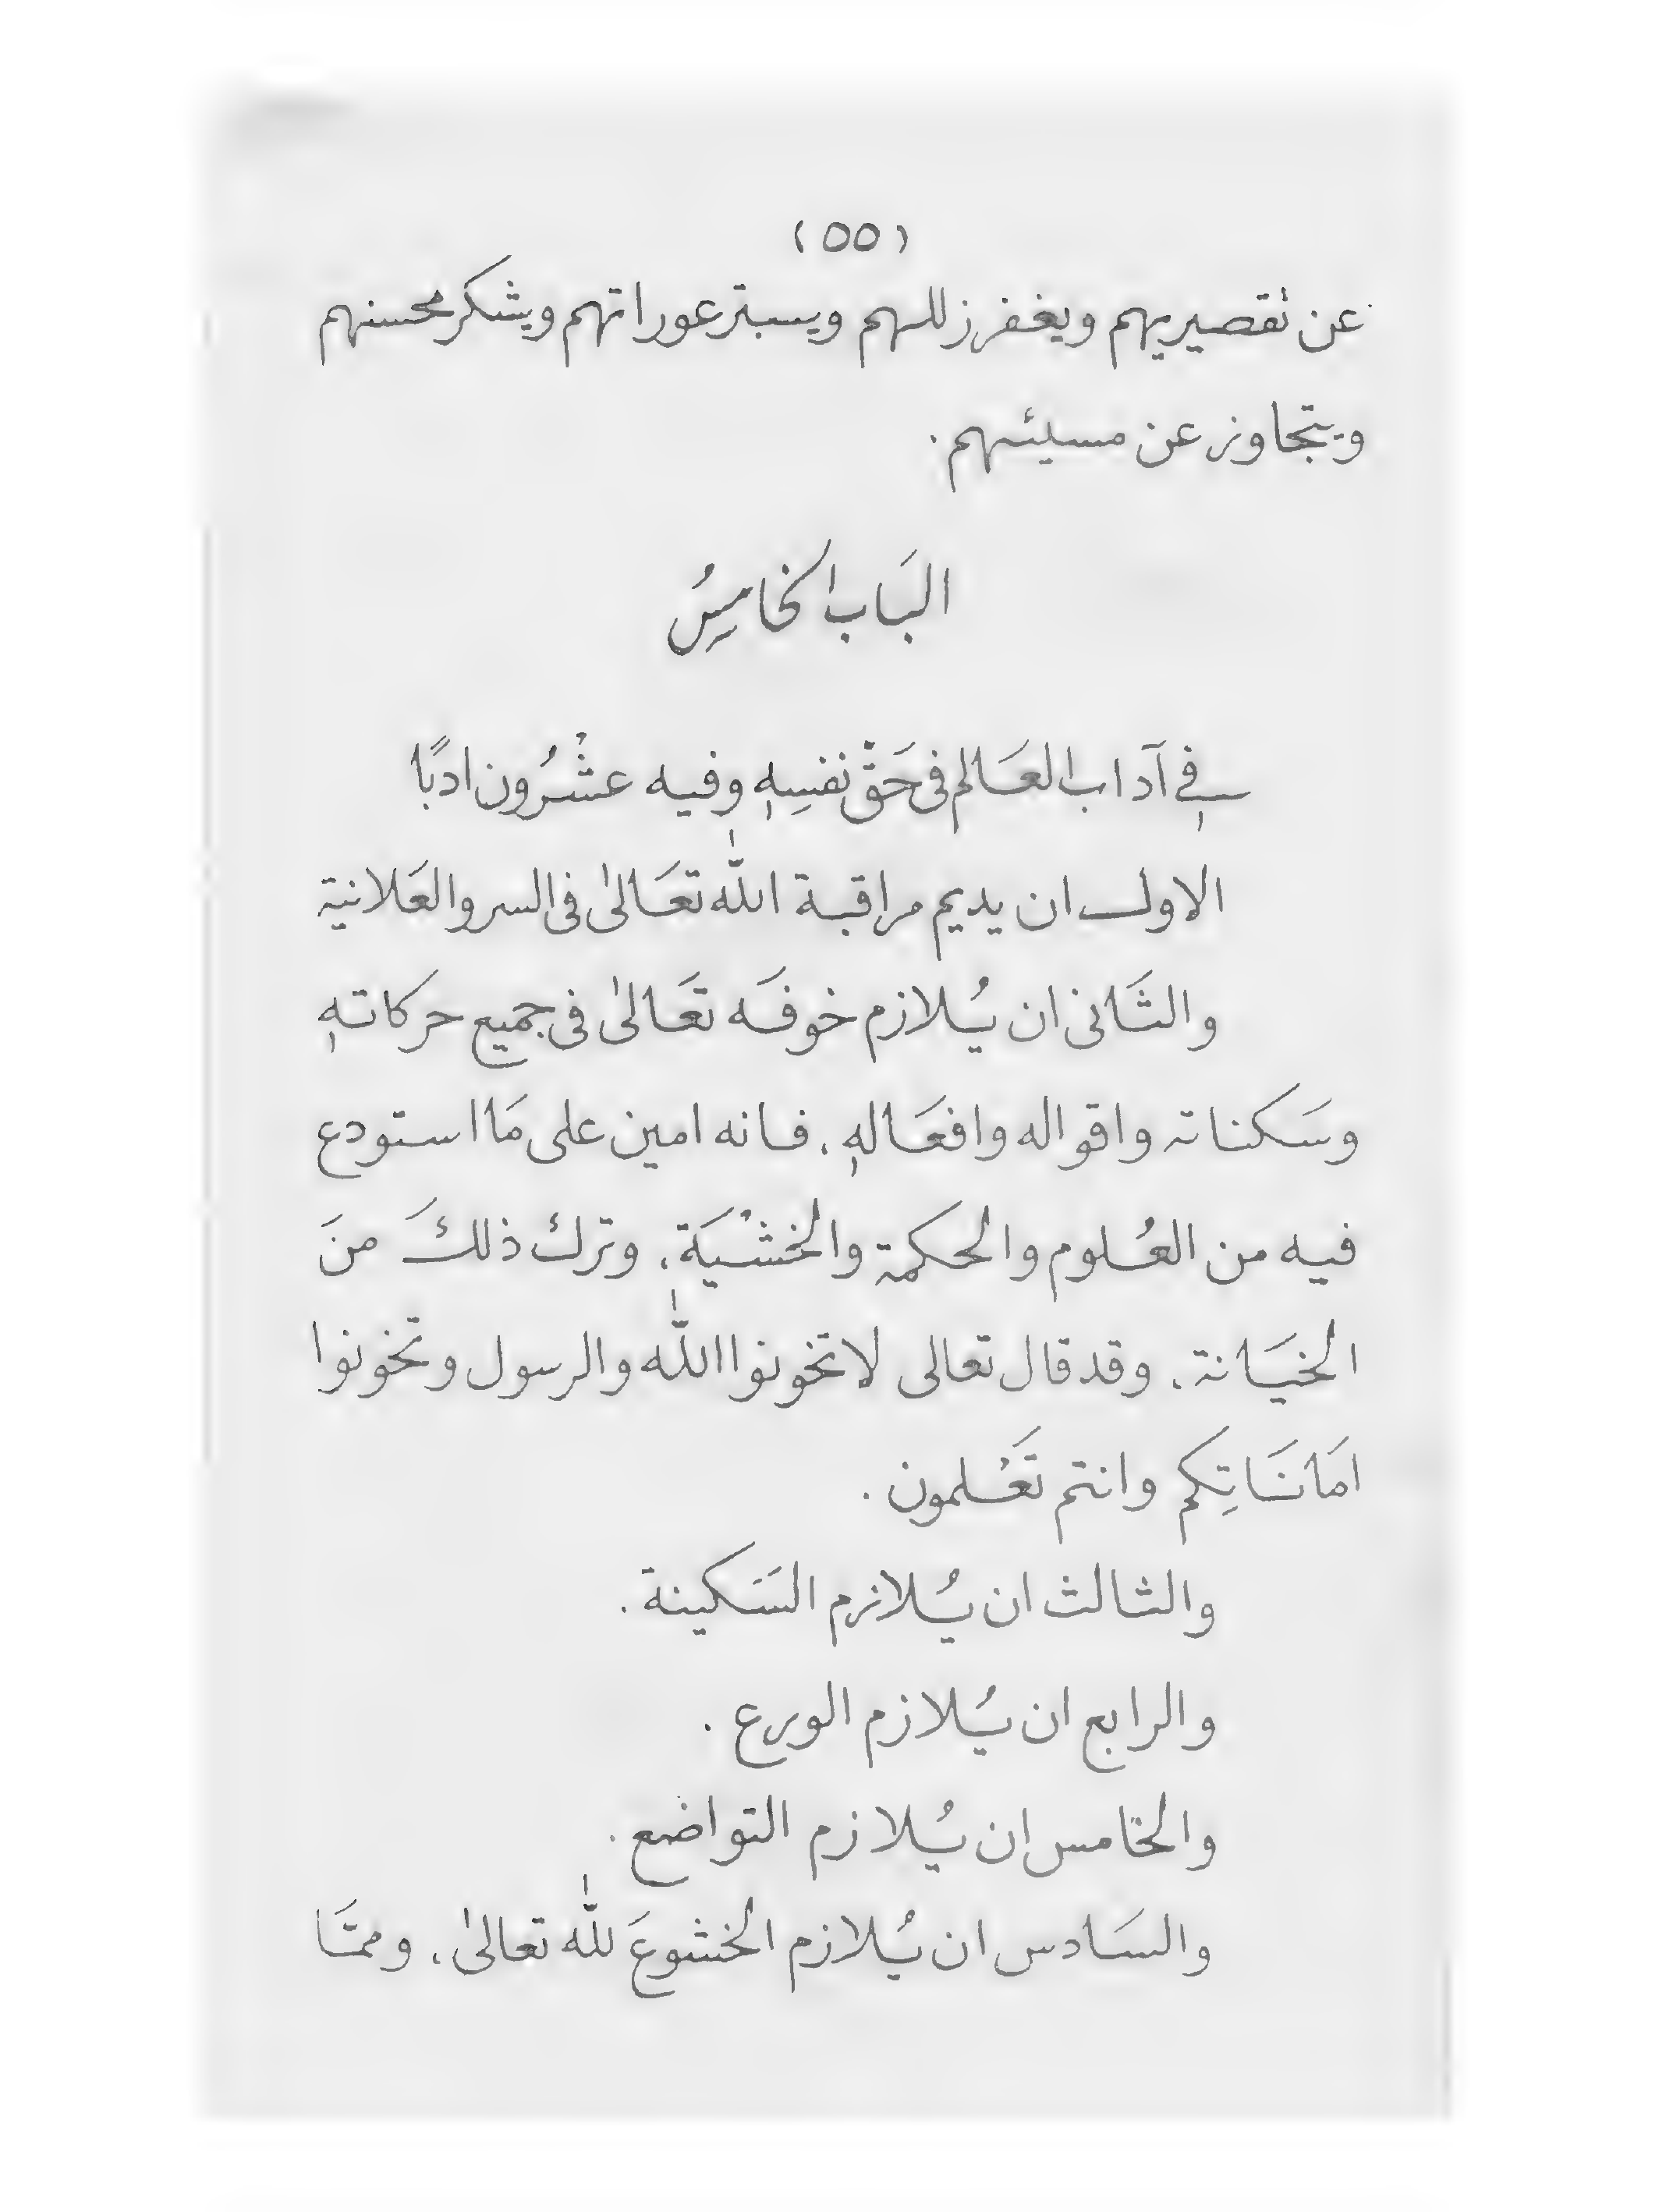 (٥٥)
عن تقصيريهم ويغفر زللهم ويستر عوراتهم ويشكر محسنهم
ويتجاوز عن مسيئهم.
البَاب الخامِسُ
في آداب العَالم فى حَقّ نفسِهٖ وفيه عشْرُون ادبًا
الاول ان يديم مراقبة اللّٰه تعَالىٰ فى السر والعَلانية
والثَانى ان يُلازم خوفَه تعَالىٰ فى جميع حركاتهٖ
وسَكناته واقواله وافعَالهٖ، فانه امين على مَا استودع
فيه من العُلوم والحكمة والخشْيَة، وترك ذلكَ منَ
الخيَانة، وقد قال تعالى لا تخونوا اللّٰه والرسول وتخونوا
امَانَاتِكم وانتم تَعْلمون.
والثالث ان يُلازم السَكينة.
والرابع ان يُلازم الورع.
والخامس ان يُلازم التواضع.
والسَادس ان يُلازم الخشوعَ للّٰه تعالىٰ، وممَّا